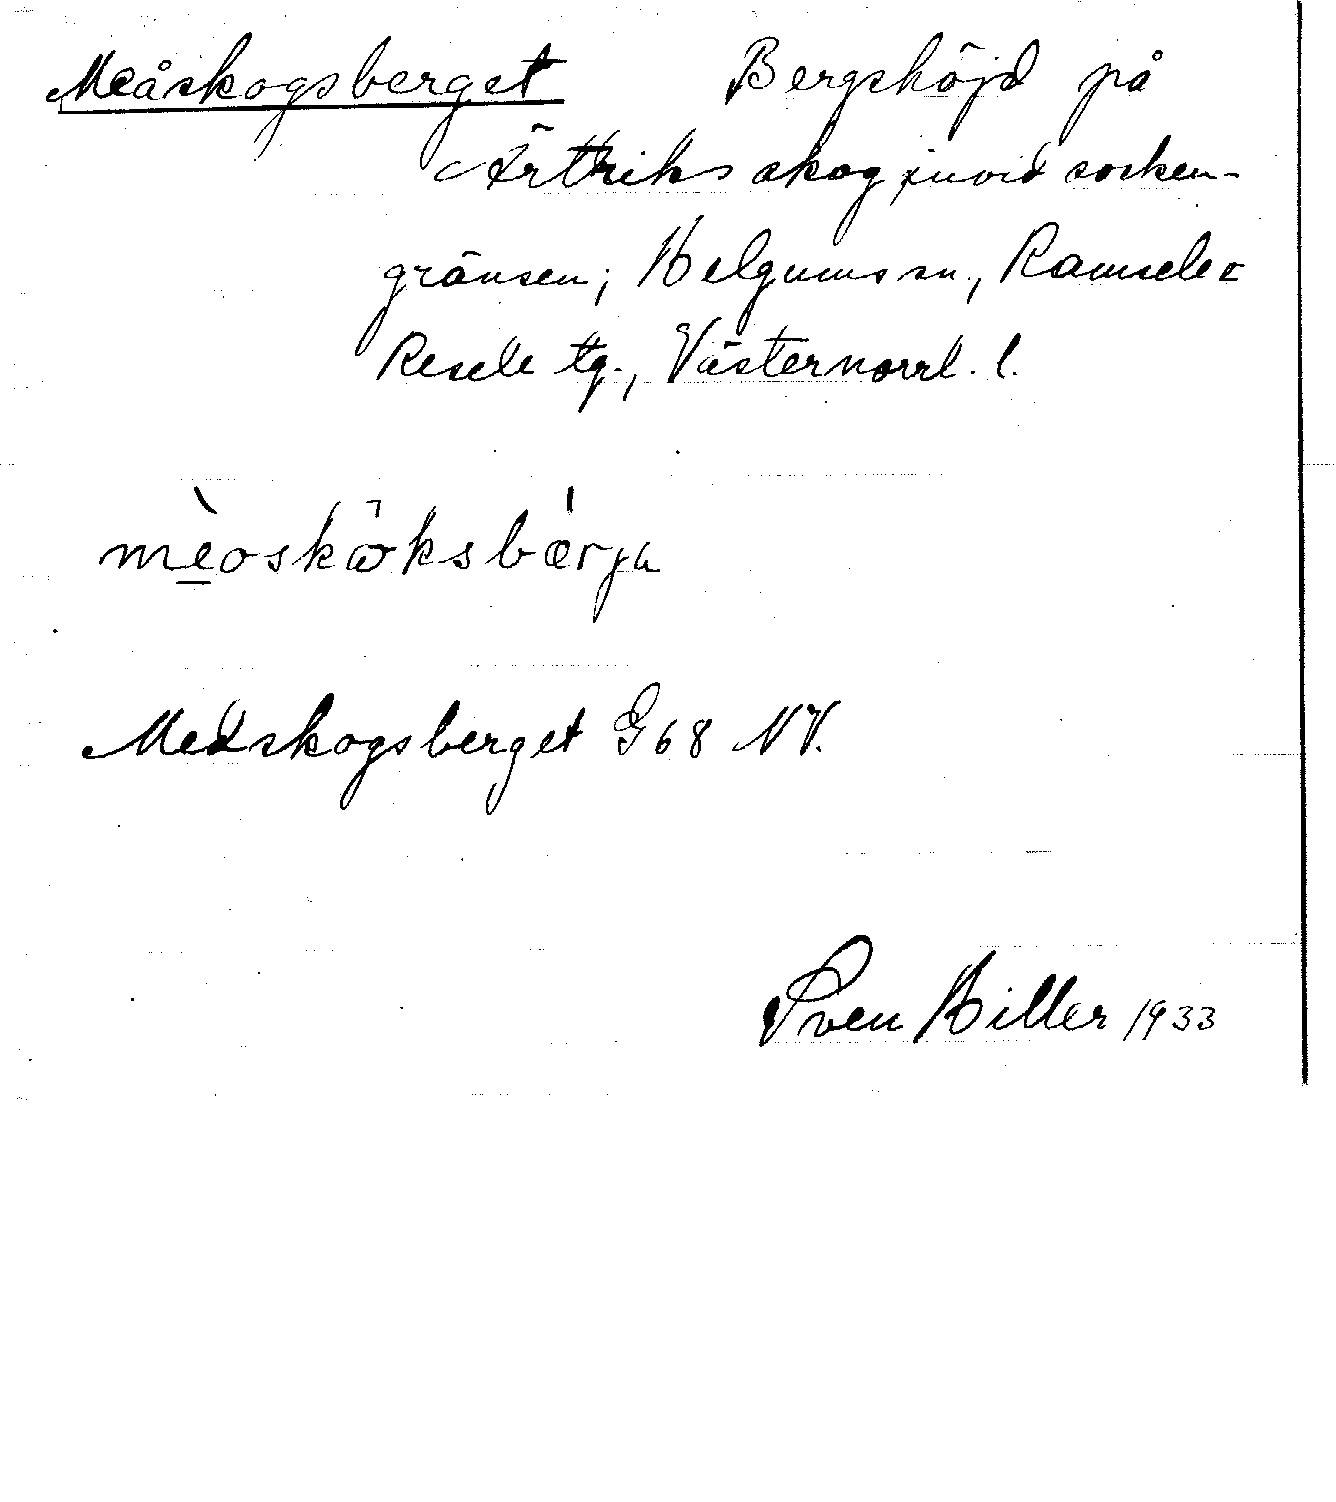 Meåskogsberget Bergshöjd på
Ärtriks skog invid socken-
gränsen; Helgums sn, Ramsele o
Resele tg., Västernorrl. l.
mèosköksbærja
Medskogsberget G 68 NV.
Sven Hiller 1933